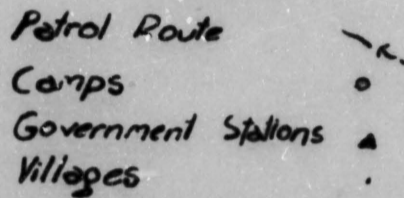 Patrol Route
Camps
Government Stations
Villages